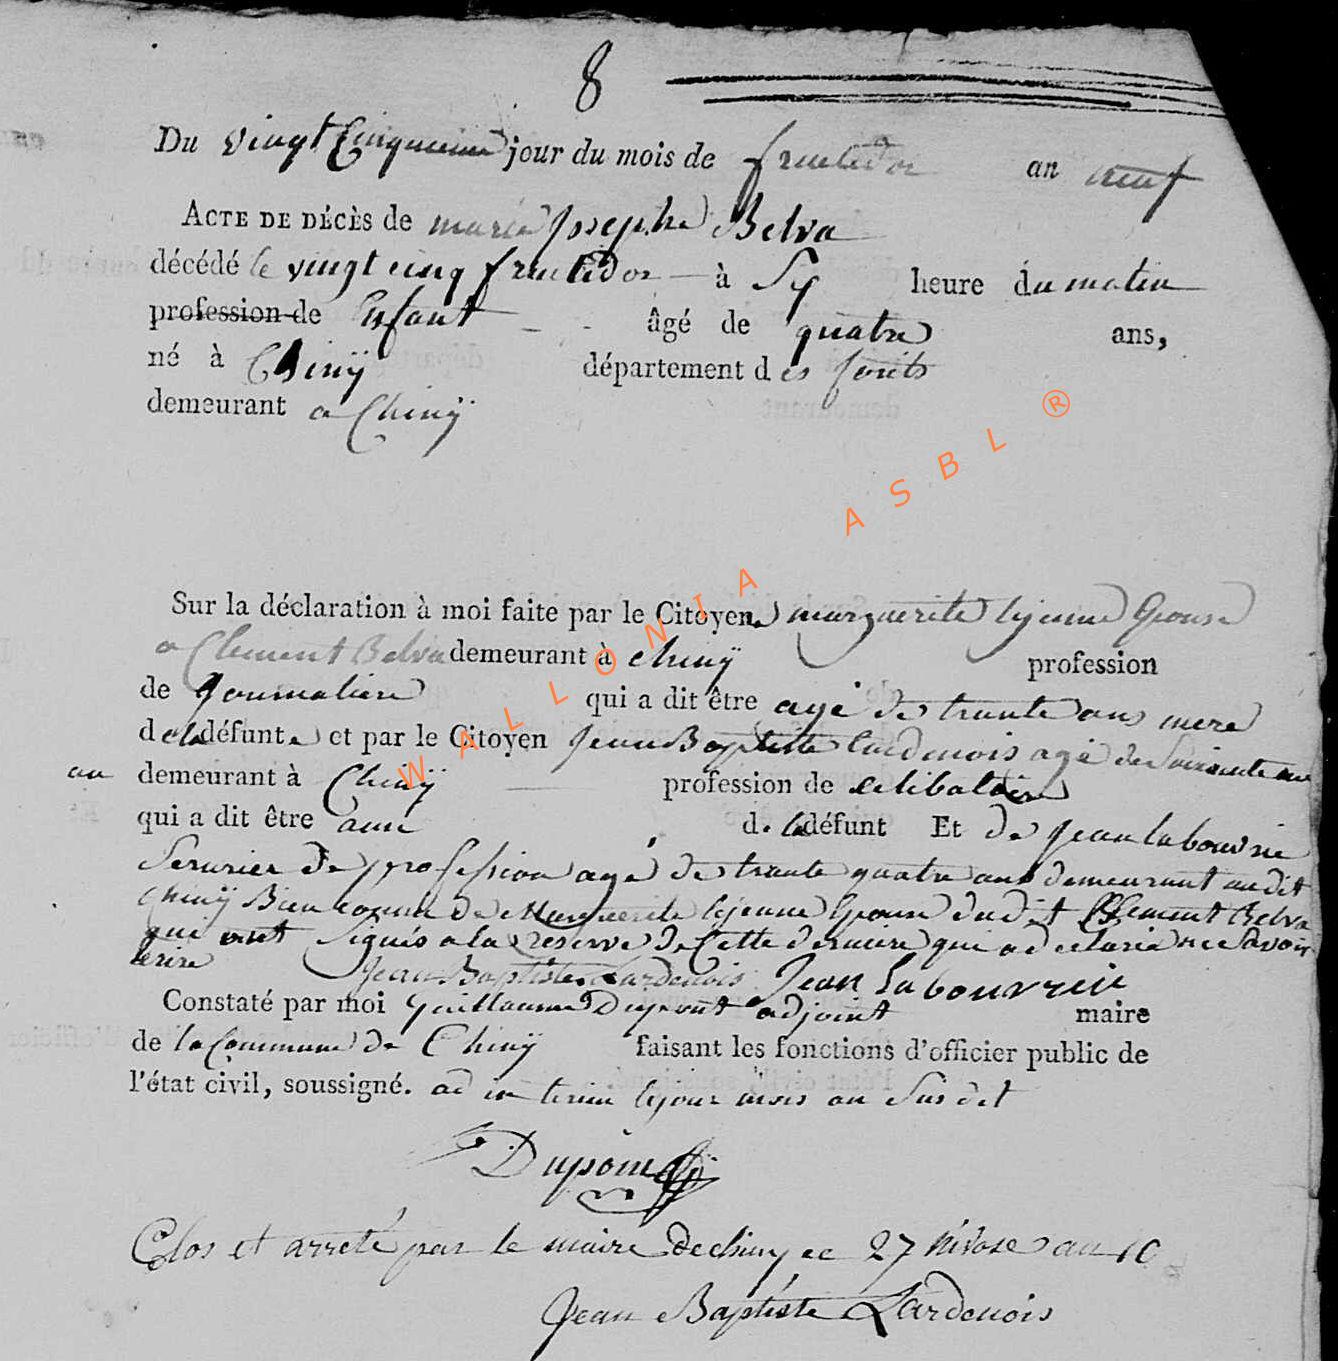 8
Du vingt Cinquieme jour du mois de fructidor an neuf
ACTE DE DÉCÈS de marie Josephe Belva
décédé le vingt cinq fructidor à Sy heure du matin
profession de Enfant âgé de quatre ans,
né à Chinÿ département des forêts
demeurant a Chinÿ
Sur la déclaration à moi faite par le Citoyenne marguerite lejeune Epouse
a Clement Belva demeurant à chinÿ profession
de Journaliere qui a dit être agé de trante ans mere
de la défunte et par le Citoyen Jean Baptiste Lardenois agé de Soixante un
an demeurant à Chinÿ profession de celibataire
qui a dit être amie de la défunt Et de Jean labouvrie
Serurier de profession agé de trante quatre ans demeurant audit
chinÿ Bien connue de Marguerite lejeune Epouse dudit Clement Belva
qui ont Signés a la reserve de Cette derniere qui a declaré ne Savoir
Ecrire Jean Baptiste Lardenois Jean Labouvrie
Constaté par moi Guillaume Dupont adjoint maire
de la Commune de Chinÿ faisant les fonctions d'officier public de
l'état civil, soussigné. ad interim lejour mois an Susdit
G Dupont
Clos et arreté par le maire de chiny ce 27 Nivose an 10
Jean Baptiste Lardenois
WALLONIA ASBL ®